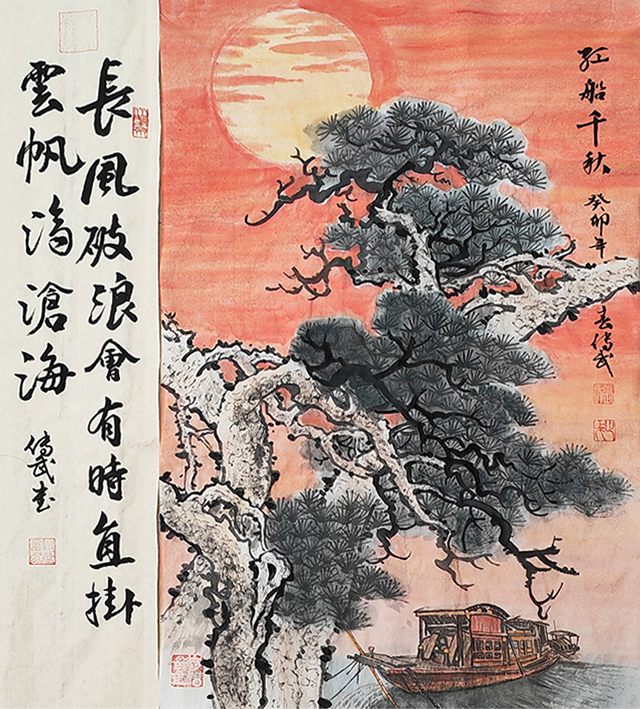 红船千秋
癸卯年春傳武
長風破浪會有時直掛
雲帆济滄海
傳武書